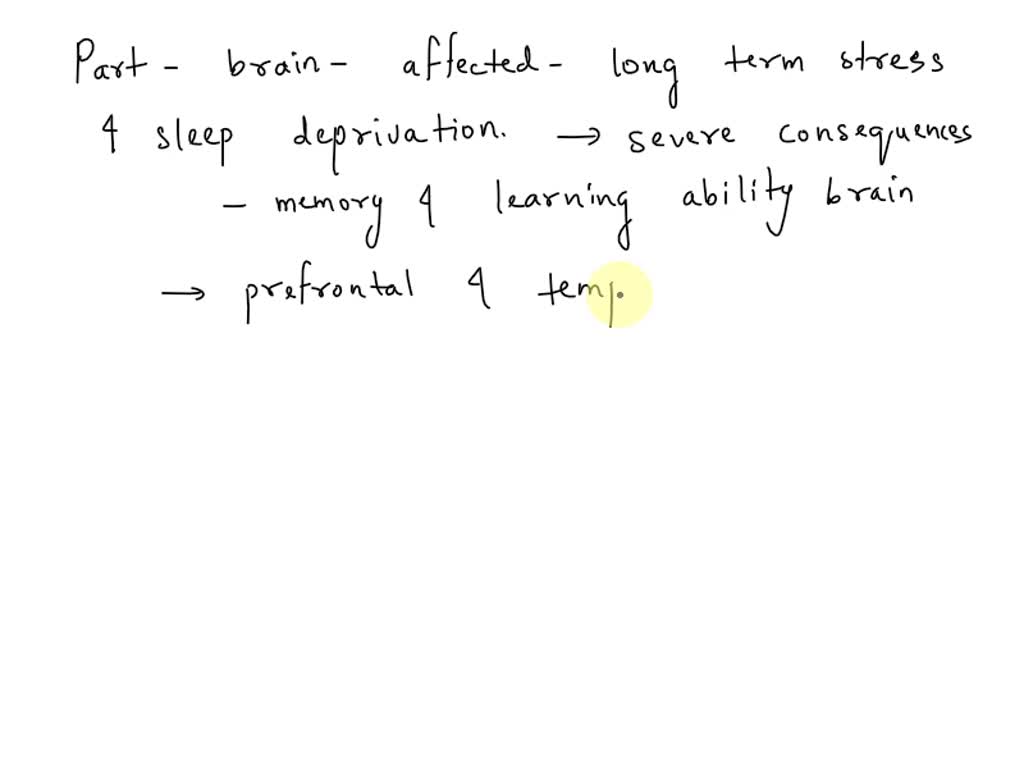 Part - brain - affected - long term stress
& sleep deprivation. → severe consequences
- memory & learning ability brain
→ prefrontal & temp